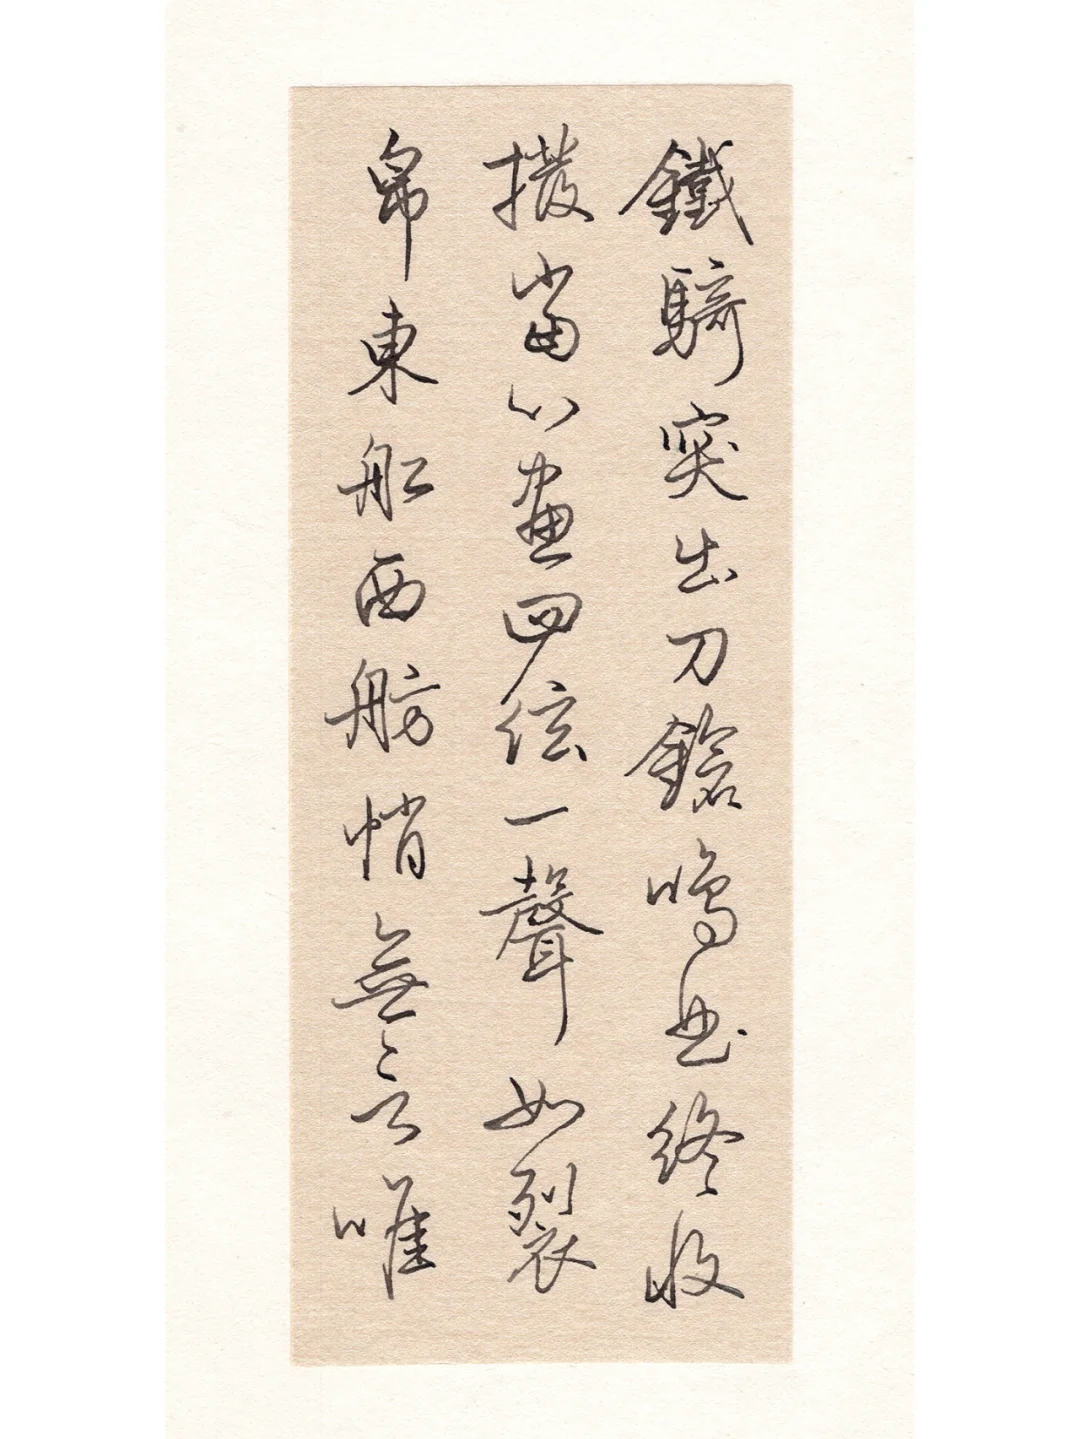 鐵騎突出刀鎗鳴曲終收
撥當心畫四弦一聲如裂
帛東船西舫悄無言唯